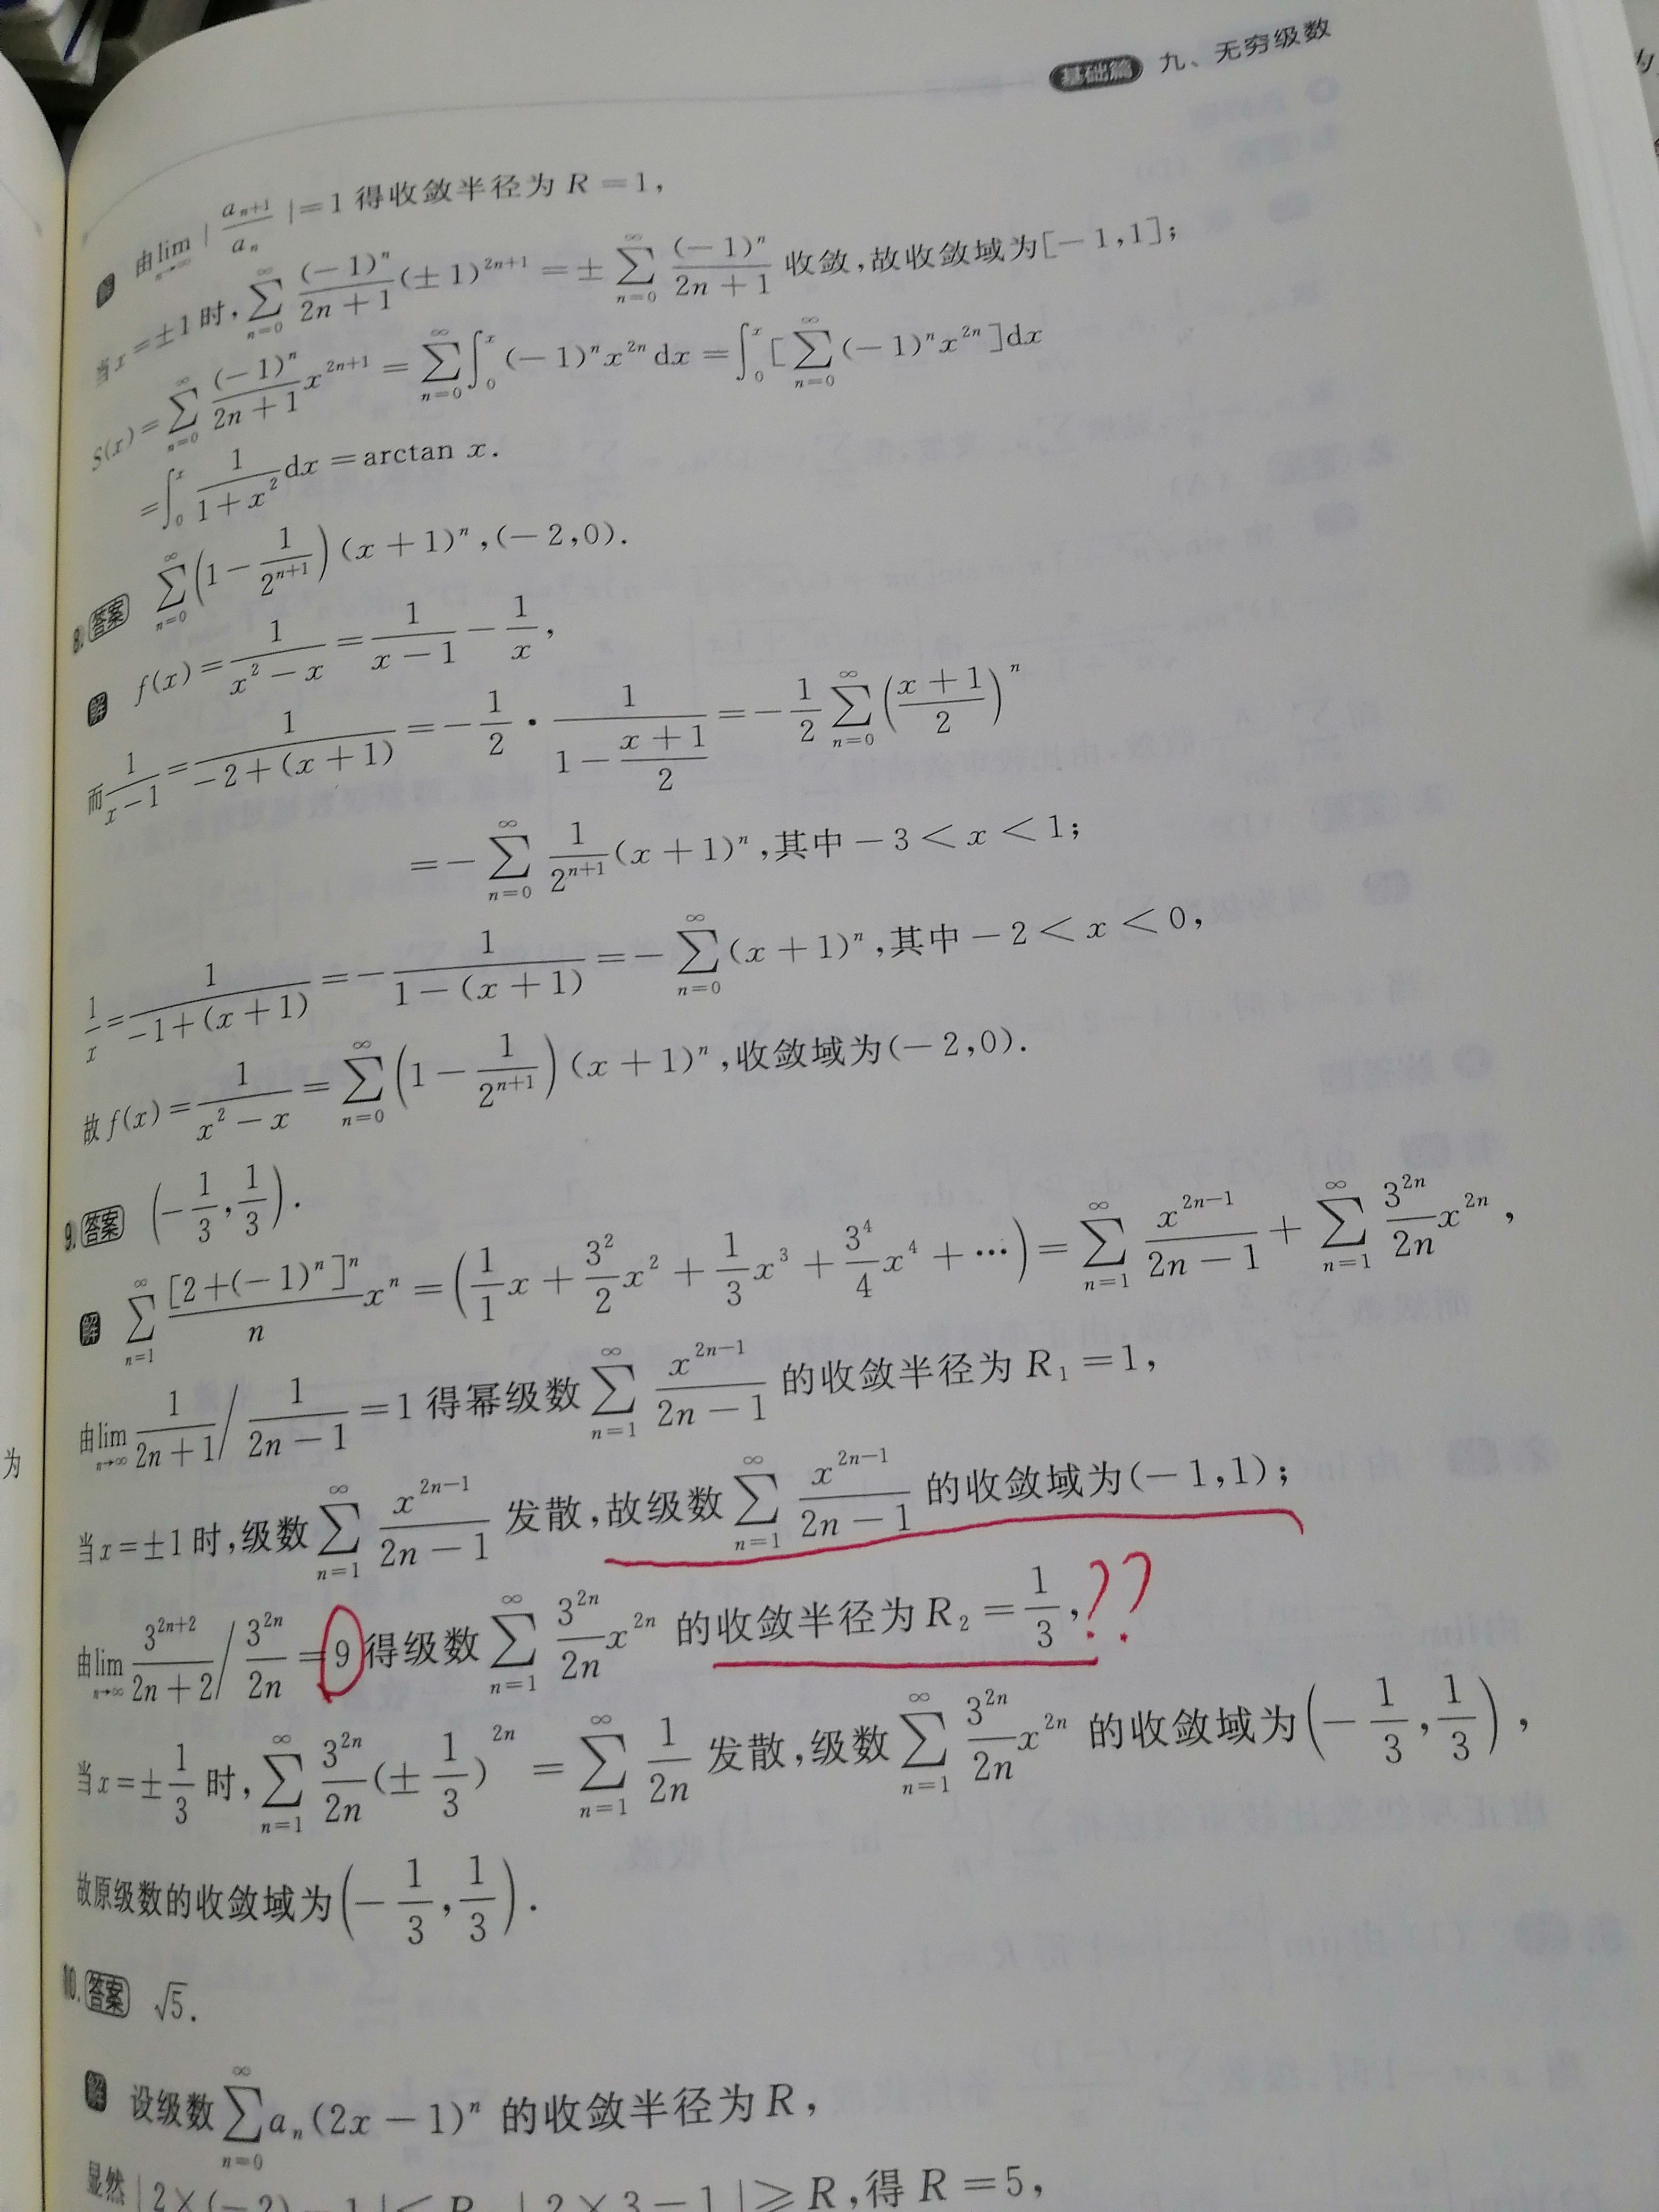 基础篇 九、无穷级数
解 由lim_{n→∞} |a_{n+1}/a_n|=1 得收敛半径为 R=1，
当x=±1时，∑_{n=0}^{∞} (-1)^n/(2n+1) (±1)^{2n+1} = ± ∑_{n=0}^{∞} (-1)^n/(2n+1) 收敛，故收敛域为[-1,1]；
S(x)=∑_{n=0}^{∞} (-1)^n/(2n+1) x^{2n+1} = ∑_{n=0}^{∞} ∫_0^x (-1)^n x^{2n} dx = ∫_0^x [∑_{n=0}^{∞} (-1)^n x^{2n}]dx
=∫_0^x 1/(1+x^2) dx = arctan x.
8. 答案 ∑_{n=0}^{∞} (1-1/2^{n+1}) (x+1)^n，(-2,0).
解 f(x)=1/(x^2-x)=1/(x-1)-1/x，
而 1/(x-1)=1/(-2+(x+1))=-1/2·1/(1-(x+1)/2)=-1/2 ∑_{n=0}^{∞} ((x+1)/2)^n
=-∑_{n=0}^{∞} 1/2^{n+1} (x+1)^n，其中-3<x<1；
1/x=1/(-1+(x+1))=-1/(1-(x+1))=-∑_{n=0}^{∞} (x+1)^n，其中-2<x<0，
故f(x)=1/(x^2-x)=∑_{n=0}^{∞} (1-1/2^{n+1}) (x+1)^n，收敛域为(-2,0).
9. 答案 (-1/3,1/3).
解 ∑_{n=1}^{∞} [2+(-1)^n]^n/n x^n = (1/1 x+3^2/2 x^2+1/3 x^3+3^4/4 x^4+⋯) = ∑_{n=1}^{∞} x^{2n-1}/(2n-1) + ∑_{n=1}^{∞} 3^{2n}/2n x^{2n}，
由lim_{n→∞} 1/(2n+1) / 1/(2n-1) =1 得幂级数 ∑_{n=1}^{∞} x^{2n-1}/(2n-1) 的收敛半径为 R_1=1，
当x=±1时，级数 ∑_{n=1}^{∞} x^{2n-1}/(2n-1) 发散，故级数 ∑_{n=1}^{∞} x^{2n-1}/(2n-1) 的收敛域为(-1,1)；
由lim_{n→∞} 3^{2n+2}/(2n+2) / 3^{2n}/2n =9 得级数 ∑_{n=1}^{∞} 3^{2n}/2n x^{2n} 的收敛半径为R_2=1/3，??
当x=±1/3时，∑_{n=1}^{∞} 3^{2n}/2n (±1/3)^{2n} = ∑_{n=1}^{∞} 1/2n 发散，级数 ∑_{n=1}^{∞} 3^{2n}/2n x^{2n} 的收敛域为(-1/3,1/3)，
故原级数的收敛域为(-1/3,1/3).
10. 答案 √5.
解 设级数 ∑_{n=0}^{∞} a_n(2x-1)^n 的收敛半径为R，
显然|2×(-2)-1|<R，|2×3-1|≥R，得R=5，
为